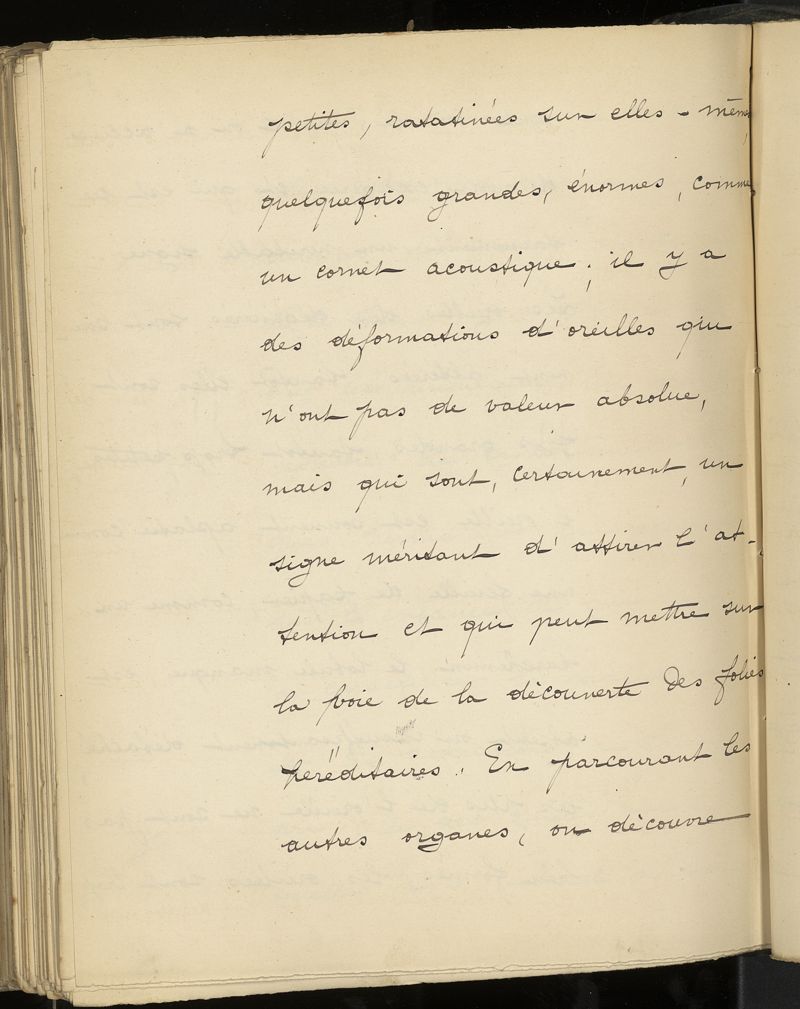 petites, ratatinées sur elles-mêmes,
quelquefois grandes, énormes, comme
un cornet acoustique ; il y a
des déformations d'oreilles qui
n'ont pas de valeur absolue,
mais qui sont, certainement, un
signe méritant d'attirer l'at-
tention et qui peut mettre sur
la voie de la découverte des folies
héréditaires. En parcourant les
autres organes, on découvre